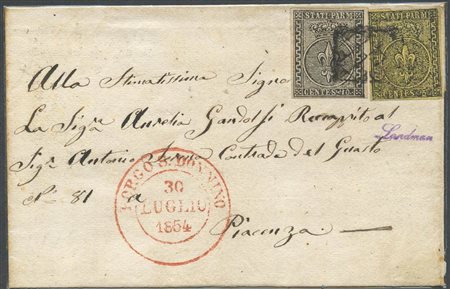 STATI PARM
CENTES. 10
STATI PARM
CENTES. 5
Alla Stimatissima Signa
La Sigra Aurelia Gandolfi Recapito al
Sigr Antonio Contrada del Guasto
No 81 a
Piacenza
BORGO S. DONNINO
30
LUGLIO
1854